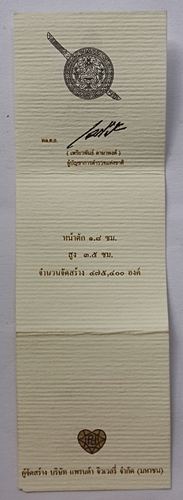 พล.ต.อ.
( เพรียวพันธ์ ดามาพงศ์ )
ผู้บัญชาการตำรวจแห่งชาติ
หน้าตัก ๑.๘ ซม.
สูง ๓.๕ ซม.
จำนวนจัดสร้าง ๔๙๕,๘๐๐ องค์
ผู้จัดสร้าง บริษัท แพรนด้า จิวเวลรี่ จำกัด (มหาชน)